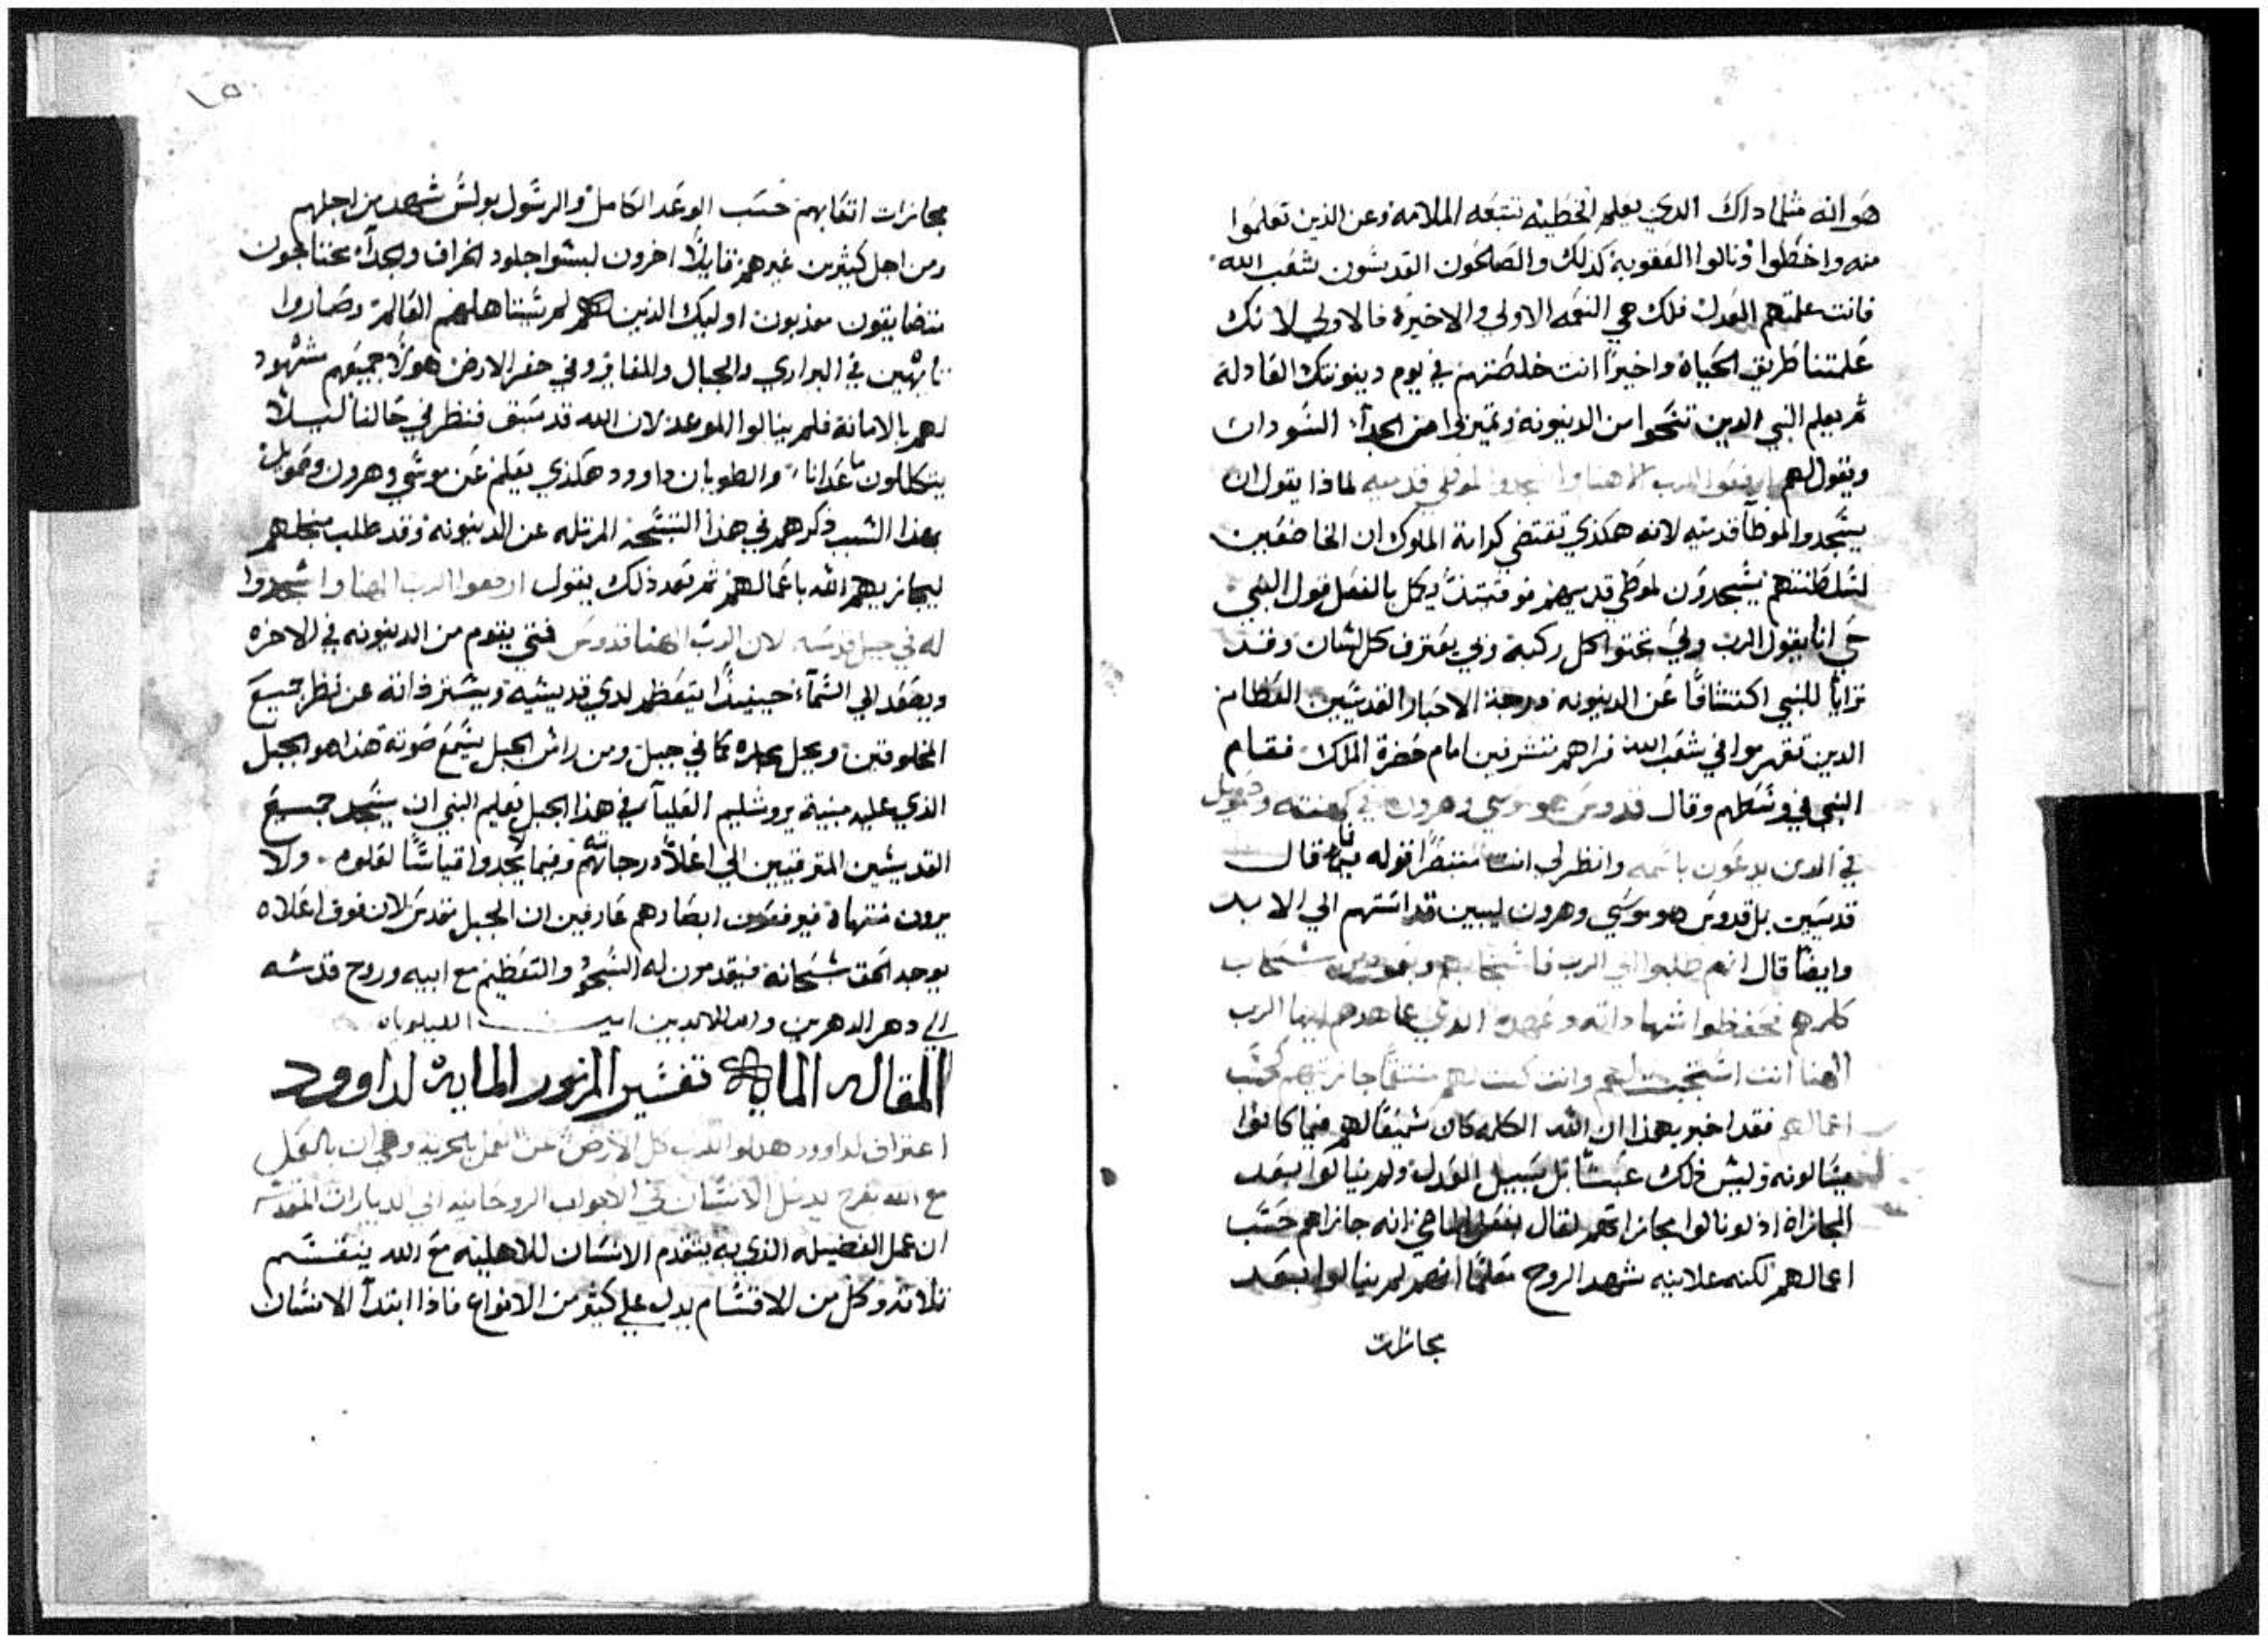 هو انه مثلما داك الدي يعلم الخطيه تتبعه الملامه وعن الذين تعلموا
منه واخطوا ونالوا العقوبة كذلك والصالحون القديسون بشعب الله
فانت علمتهم العدل فلك هي النعمه الاولي والاخيرة فالاولي لانك
علمتنا طريق الحياة واخيرا انت خلصتهم في يوم دينونتك العادلة
ثم يعلم النبي الدين تنحوا من الدينونه وتميزوا من الجدآء السودات
ويقول لهم ارفعوا الرب الاهنا واسجدوا لموطي قدميه لماذا يقول ان
يسجدوا لموطآ قدميه لانه هكذي تقتضي كرامة الملوك ان الخاضعين
لسلطنتهم يسجدون لموطي قدميهم فوقتيذ يكمل بالفعل قول النبي
حي انا يقول الرب ولي تجتوا كل ركبة وبي يعترف كل لسان وقد
ترايا للنبي اكتشافا عن الدينونه ودرجة الاحبار القديسين العظام
الدين تقدموا في شعب الله فراهم متشرفين امام حضرة الملك فقام
النبي في وسطهم وقال قدوس هو موسي وهرون في كهنته وصمويل
في الدين يدعون باسمه وانظر لي انت متنصتا قوله فما قال
قديسين بل قدوس هو موسي وهرون ليبين قداستهم الي الابد
وايضا قال انهم طلبوا الي الرب فاستجابهم وبعمود سحاب
كلمهم فحفظوا شهاداته وعهده الدي عاهدهم ايها الرب
الهنا انت استجبت لهم وانت كنت لهم منتقما جازيتهم كحسب
اعمالهم فقد اخبر بهذا ان الله الكلمه كان سميعا لهم فيما كانوا
يسالونه وليس ذلك عبثا بل بسبيل العدل ولم ينالوا بعد
المجازاة اذ لو نالوا مجازاتهم لقال بفعل الماضي انه جازاهم حسب
اعمالهم لكنه علانيه شهد الروح معلما انهم لم ينالوا بعد
مجازات
مجازات اتعابهم حسب الوعد الكامل والرسول بولس شهد من اجلهم
ومن اجل كثيرين غيرهم قايلا اخرون لبسوا جلود الخراف والجدآء محتاجون
متضايقون معذبون اوليك الذين لم يستاهلهم العالم وصاروا
تايهين في البراري والجبال والمغاير وفي حفر الارض هولا جميعهم مشهود
لهم بالامانة فلم ينالوا الموعد لان الله قد سبق فنظر في حالنا ليلا
يتكالون ما عدانا والطوبان داوود هكذي يعلم عن موسي وهرون وصمويل
بهذا السبب ذكرهم في هذا التسبحة المرتله عن الدينونه وقد طلب منجلهم
ليجازيهم الله باعمالهم ثم بعد ذلك يقول ارفعوا الرب الهنا واسجدوا
له في جبل قدسه لان الرب الهنا قدوس فمتي يقوم من الدينونه في الاخره
ويصعد الي السمآء حينيذا يتعظم لدي قديسيه ويستر ذاته عن نظر جميع
المخلوقين ويحل مجده كما في جبل ومن راس الجبل يسمع صوته هذا هو الجبل
الذي عليه مبنية يروشليم العليآ في هذا الجبل تعليم النبي ان يسجد جميع
القديسين المترقيين الي اعلآ درجاتهم وفيما لا يجدوا قياسا لعلوه ولا
يرون منتهاه فيرفعون ابصارهم عارفين ان الجبل مقدس لان فوق اعلاه
يوجد الحق سبحانه فيقدمون له السجود والتعظيم مع ابيه وروح قدسه
الي دهر الدهرين وابد الابدين امين الليلوياه
المقاله المايه تفسير المزمور المايه لداوود
اعتراف لداوود هللوا للرب كل الارض عن العمل بالحريه وهي ان بالعمل
مع الله بفرح يدخل الانسان في الابواب الروحانيه الي الديارات المقدسه
ان عمل الفضيله الذي به يتقدم الانسان للاهليه مع الله ينقسم
تلاتة وكل من الاقسام يدل علي كثير من الانواع فاذا ابتدآ الانسان